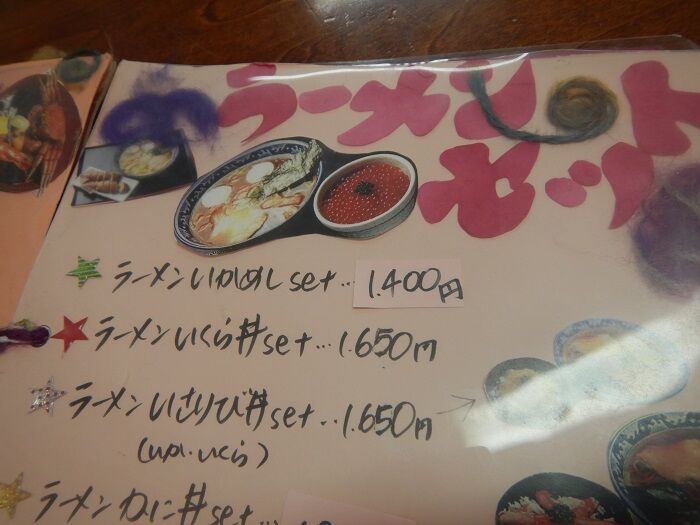 ラーメン
セット
ラーメンいかめしset… 1.400円
ラーメンいくら丼set…1.650円
ラーメンいさりび丼set…1.650円
(いか・いくら)
ラーメンかに丼set…